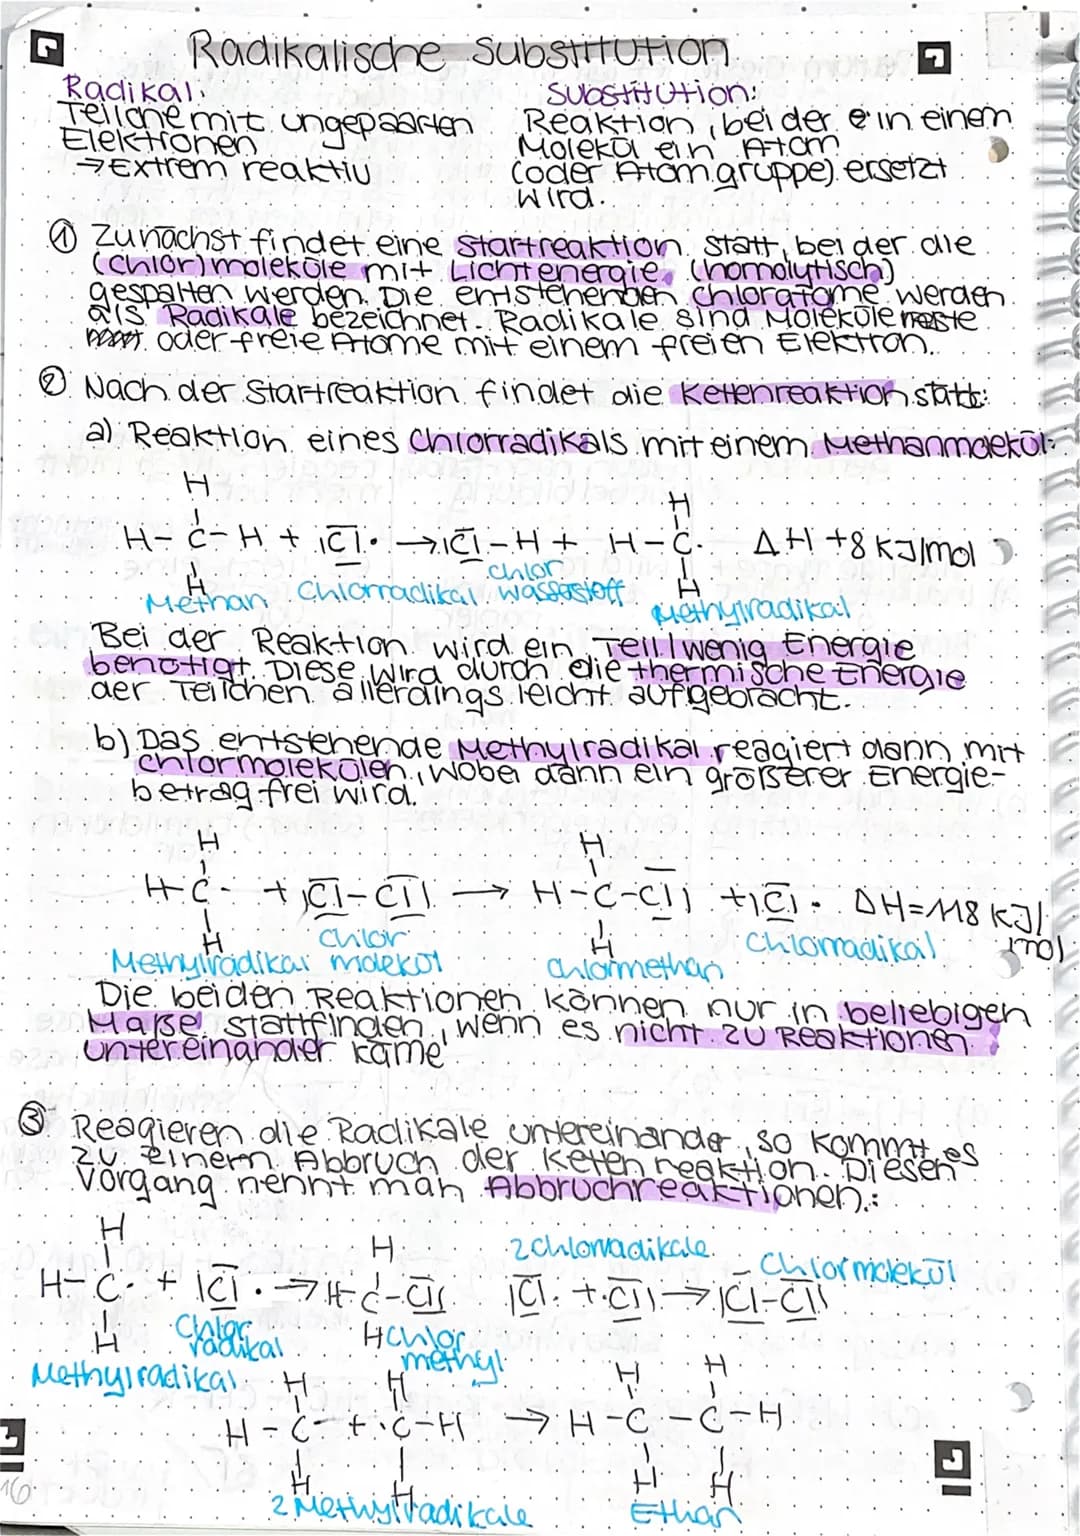 Radikalische Substitution
Radikal:
Teilche mit ungepaarten
Elektronen
→ Extrem reaktiv
Substitution:
Reaktion, bei der in einem
Molekül ein Atom
(oder Atomgruppe) ersetzt
wird.
① Zunächst findet eine Startreaktion statt, bei der die
(Chlor)moleküle mit Lichtenergie (homolytisch)
gespalten werden. Die entstehenden Chloratome werden
als Radikale bezeichnet. Radikale sind Moleküle reste
oder freie Atome mit einem freien Elektron.
② Nach der Startreaktion findet die Kettenreaktion statt:
a) Reaktion eines Chlorradikals mit einem Methanmoekül:
H
H-C-H + |Cl• → |Cl-H + H-C• ΔH +8 KJ/mol
H
H
H
Methan Chlorradikal Chlor wasserstoff Methylradikal
Bei der Reaktion wird ein Teil wenig Energie
benötigt. Diese wird durch die thermische Energie
der Teilchen allerdings leicht aufgebracht.
b) Das entstehende Methylradikal reagiert dann mit
Chlormolekülen, wobei dann ein größerer Energie-
betrag frei wird.
H
H
H-C• + |Cl-Cl| → H-C-Cl| + |Cl• ΔH=118 KJ/
mol
H
H
Methylradikal Chlor molekül Chlormethan Chlorradikal
Die beiden Reaktionen können nur in beliebigen
Maße stattfinden, wenn es nicht zu Reaktionen
untereinander käme
③ Reagieren die Radikale untereinander, so kommt es
zu einem Abbruch der Ketten reaktion. Diesen
Vorgang nennt man Abbruchreaktionen.:
H
H
2 Chlorradikale Chlormolekül
H-C• + |Cl• → H-C-Cl| |Cl• + •Cl| → |Cl-Cl|
H
H
Methylradikal Chlor radikal Chlor methyl
H
H
H
H
H-C• + •C-H → H-C-C-H
H
H
H
H
2 Methylradikale Ethan
16